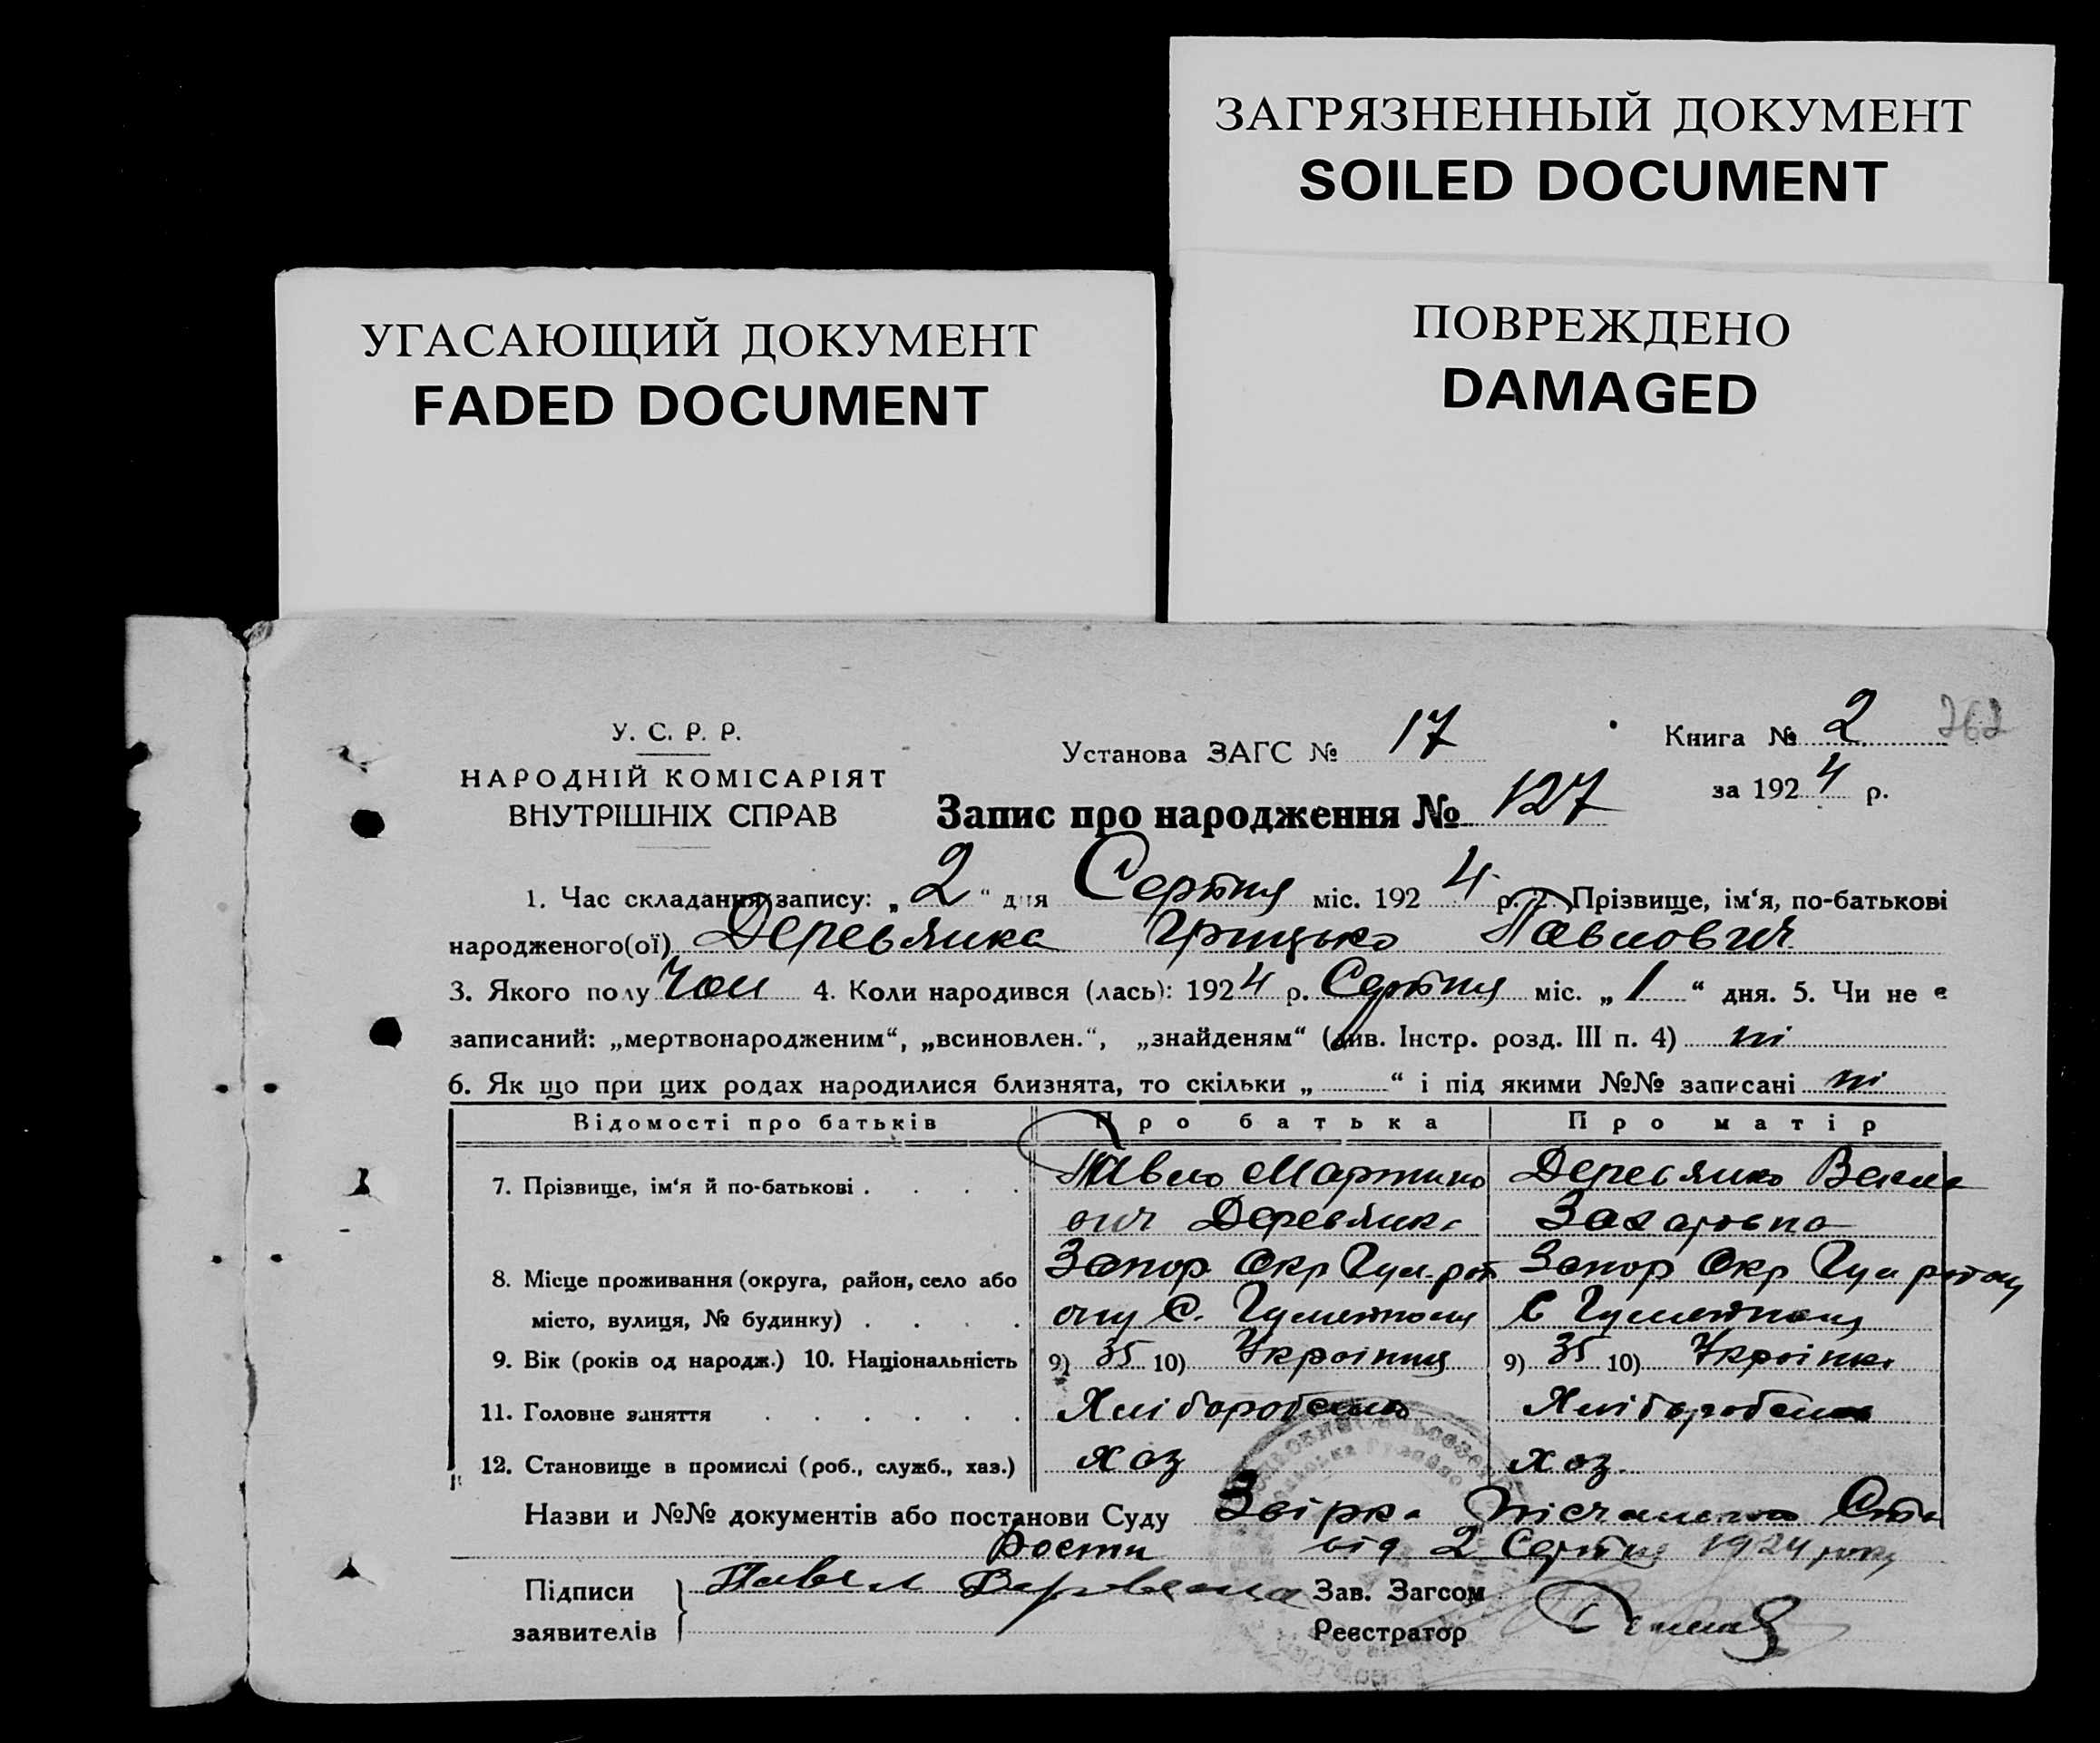 ЗАГРЯЗНЕННЫЙ ДОКУМЕНТ
SOILED DOCUMENT
УГАСАЮЩИЙ ДОКУМЕНТ
FADED DOCUMENT
ПОВРЕЖДЕНО
DAMAGED
У. С. Р. Р.
НАРОДНІЙ КОМІСАРІЯТ
ВНУТРІШНІХ СПРАВ
Установа ЗАГС № 17
Книга № 2 262
за 1924 р.
Запис про народження № 127
1. Час складання запису: „2“ дня Серпня міс. 1924 р. 2. Прізвище, ім‘я, по-батькові
народженого(ої) Деревянка Грицько Павлович
3. Якого полу Чол 4. Коли народився (лась): 1924 р. Серпня міс. „1“ дня. 5. Чи не є
записаний: „мертвонародженим“, „всиновлен.“, „знайденям“ (див. Інстр. розд. III п. 4) ні
6. Як що при цих родах народилися близнята, то скільки „ “ і під якими №№ записані ні
Відомості про батьків Про батька Про матір
7. Прізвище, ім‘я й по-батькові . . . . Павло Мартино Деревянко Векла
вич Деревянка Захаровна
8. Місце проживання (округа, район, село або Запор Окр Гул. рай Запор Окр Гул району
місто, вулиця, № будинку) . . . . ону С.
9. Вік (років од народж.) 10. Національність 9) 35 10) Українць 9) 35 10) Українка
11. Головне заняття . . . . . . Хліборобство Хліборобство
12. Становище в промислі (роб., служб., хаз.) хоз хоз
Назви и №№ документів або постанови Суду Звірка
від 2 Серпня 1924 року
Підписи
заявителів
Павел
Зав. Загсом
Реєстратор